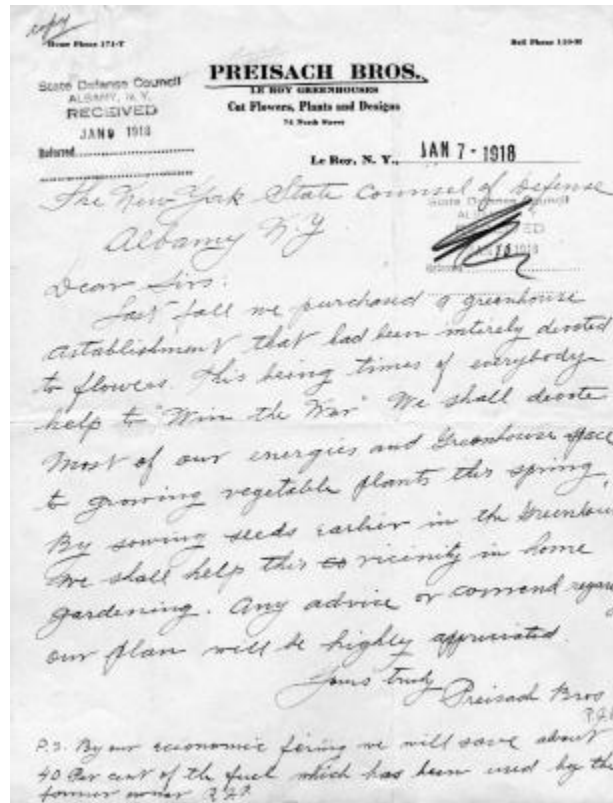 copy
Home Phone 171-Y
Bell Phone 110-M
PREISACH BROS.
LE ROY GREENHOUSES
Cut Flowers, Plants and Designs
74 North Street
State Defense Council
ALBANY, N. Y.
RECEIVED
JAN 9 1918
Referred
Le Roy, N. Y., JAN 7 - 1918
The New York State Counsel of Defense
Albany N.Y
State Defense Council
1918
Dear Sirs:
Last fall we purchased a greenhouse
establishment that had been intirely devoted
to flowers. This being times of everybody
help to "Win the War" We shall devote
most of our energies and Greenhouse space
to growing vegetable plants this spring.
By sowing seeds earlier in the Greenhou
we shall help this vicinity in home
gardening. Any advice or comend regard
our plan will be highly appreciated.
Yours truly
Preisach Bros
P.S. By our economic firing we will save about
40 Per cent of the fuel which has been used by the
former owner